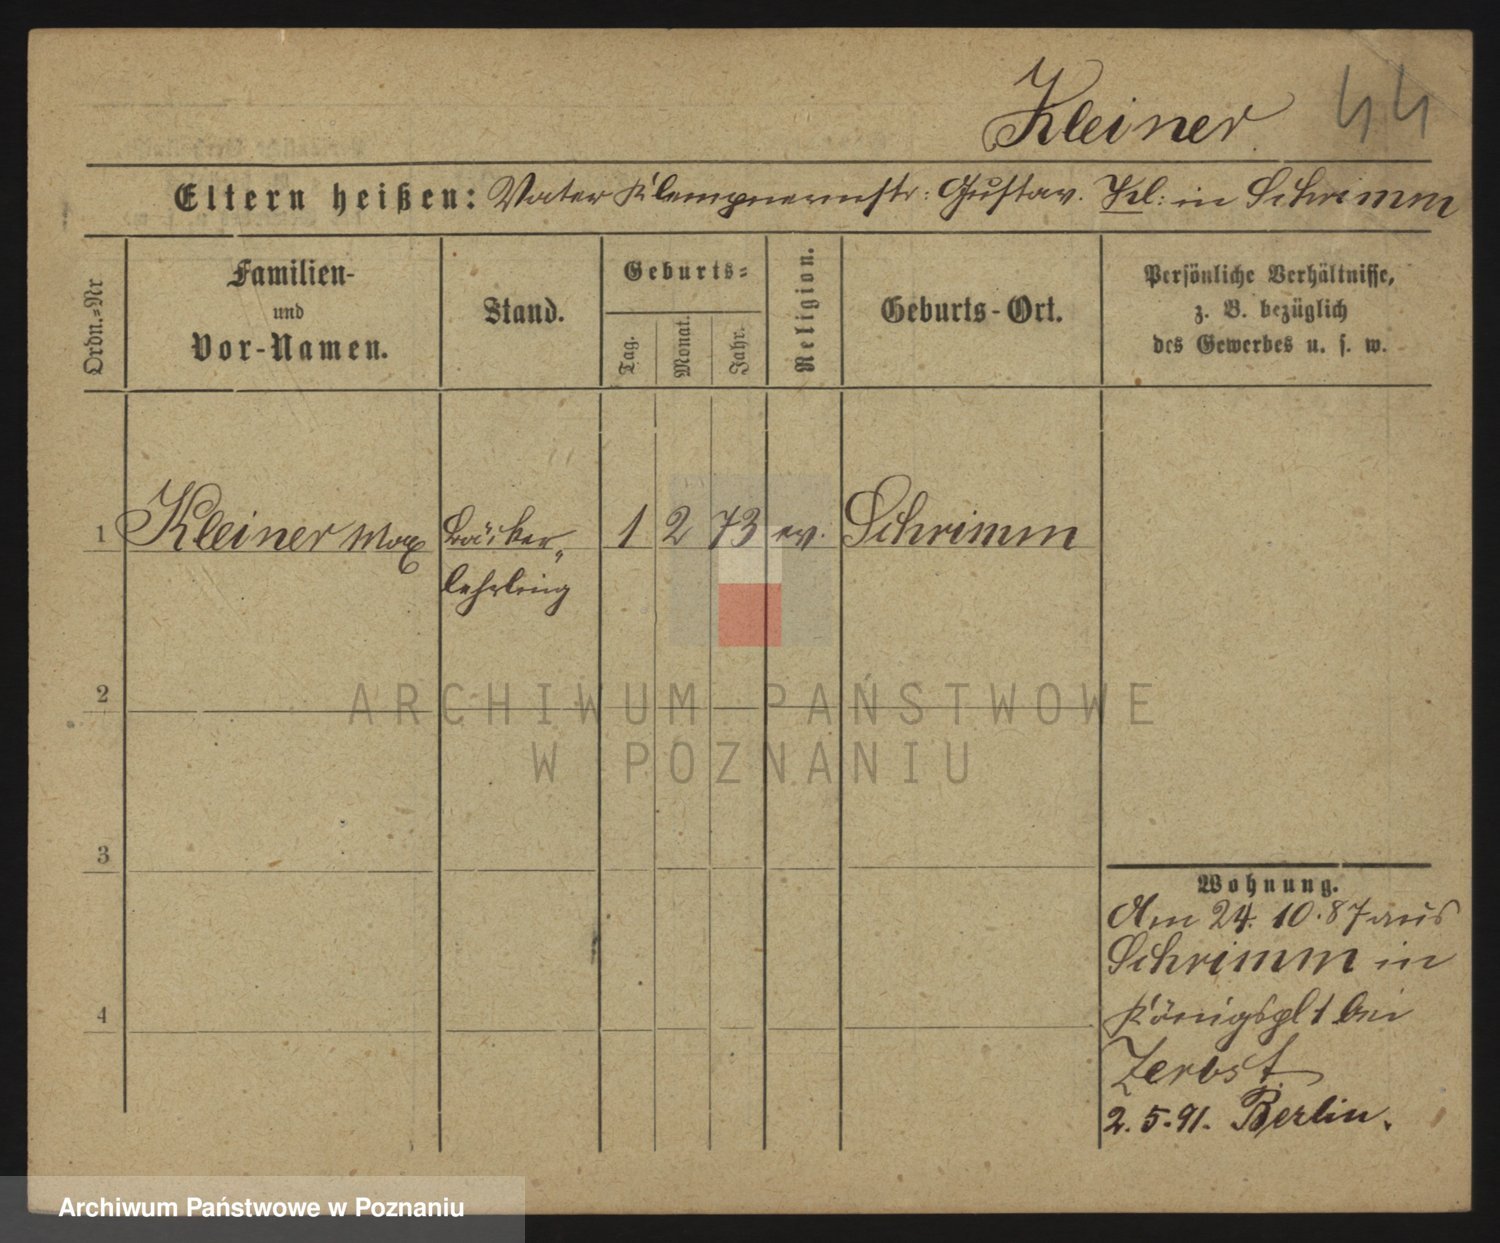 Kleiner 44
Eltern heißen: Vater Klempnermstr: Gustav. Kl: in Schrimm
Ordn.=Nr
Familien-
und
Vor-Namen.
Stand.
Geburts=
Tag.
Monat.
Jahr.
Religion.
Geburts-Ort.
Persönliche Verhältnisse,
z. B. bezüglich
des Gewerbes u. s. w.
1 Kleiner Max Bäcker„ 1 2 73 ev. Schrimm
lehrling
2
3
4
Wohnung.
Am 24. 10. 87 aus
Schrimm in
Königspl 1 bei
Zerbst
2. 5. 91. Berlin.
ARCHIWUM PAŃSTWOWE
W POZNANIU
Archiwum Państwowe w Poznaniu